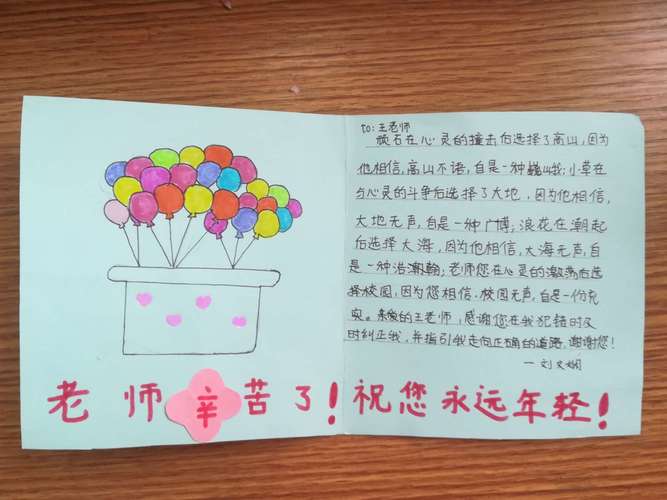 to:王老师
顽石在心灵的撞击后选择了高山,因为
他相信,高山不语,自是一种巍峨;小草在
与心灵的斗争后选择了大地,因为他相信,
大地无声,自是一种广博;浪花在潮起
后选择大海,因为他相信,大海无声,自
是一种浩瀚;老师您在心灵的激荡后选
择校园,因为您相信,校园无声,自是一份充
实。亲爱的王老师,感谢您在我犯错时及
时纠正我,并指引我走向正确的道路,谢谢您!
一刘文娴
老师辛苦了!祝您永远年轻!